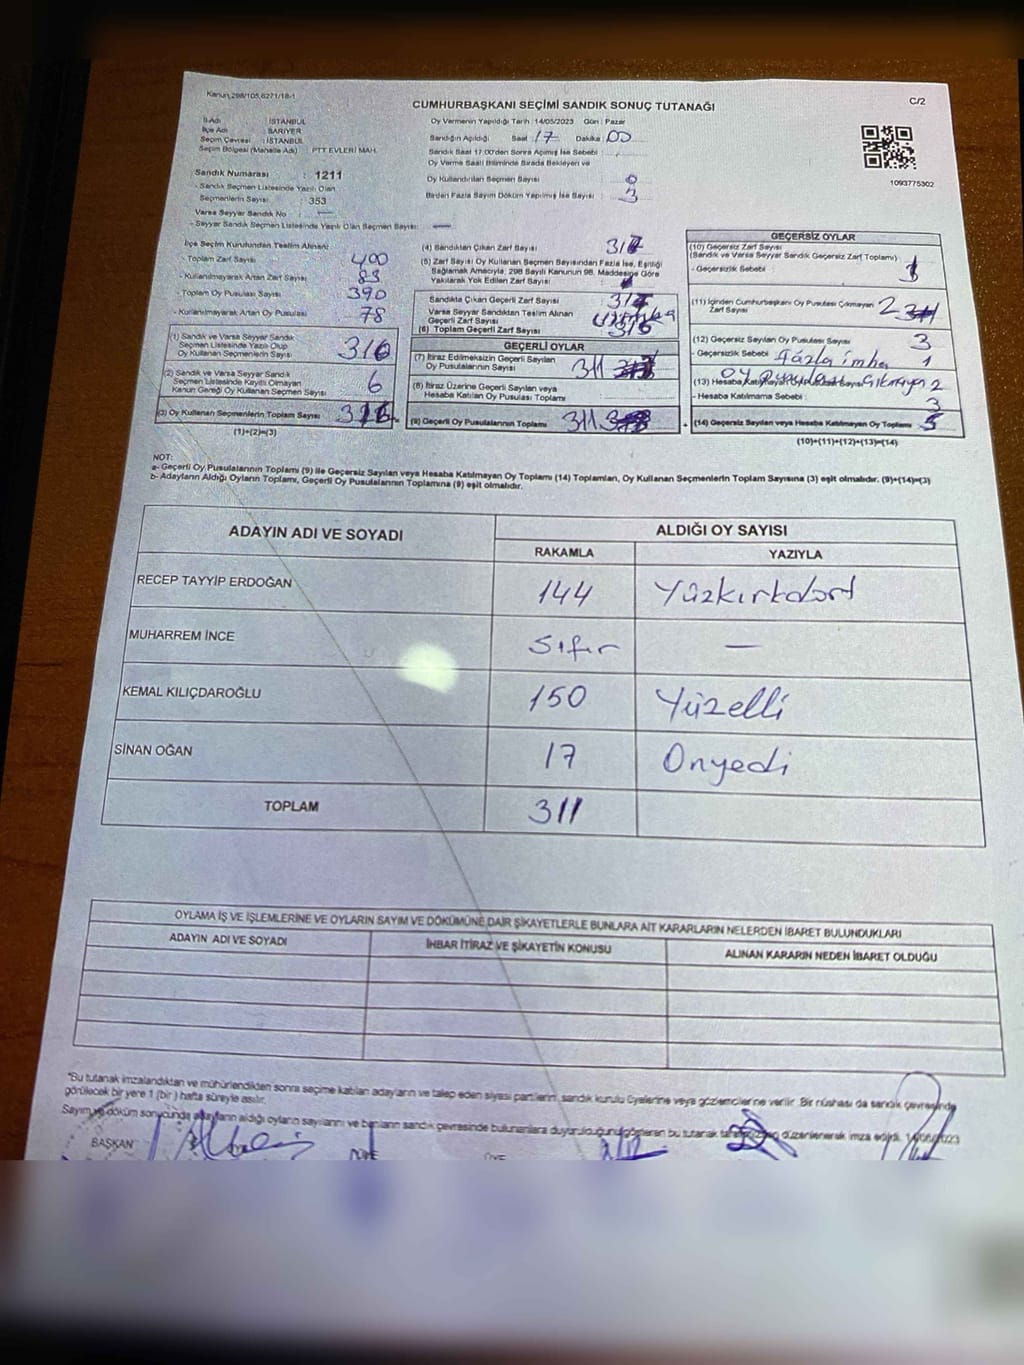 Kanun,298/105,6271/18-1
CUMHURBAŞKANI SEÇİMİ SANDIK SONUÇ TUTANAĞI
C/2
İl Adı : İSTANBUL
İlçe Adı : SARIYER
Seçim Çevresi : İSTANBUL
Seçim Bölgesi (Mahalle Adı) : PTT EVLERİ MAH.
Sandık Numarası : 1211
- Sandık Seçmen Listesinde Yazılı Olan
Seçmenlerin Sayısı : 353
Varsa Seyyar Sandık No : —
- Seyyar Sandık Seçmen Listesinde Yazılı Olan Seçmen Sayısı : —
Oy Vermenin Yapıldığı Tarih :14/05/2023 Gün : Pazar
Sandığın Açıldığı Saat : 17 Dakika : 00
Sandık Saat 17:00'den Sonra Açılmış İse Sebebi :
Oy Verme Saati Bitiminde Sırada Bekleyen ve
Oy Kullandırılan Seçmen Sayısı : 0
Birden Fazla Sayım Döküm Yapılmış İse Sayısı : 3
1093775302
İlçe Seçim Kurulundan Teslim Alınan:
- Toplam Zarf Sayısı : 400
- Kullanılmayarak Artan Zarf Sayısı
- Toplam Oy Pusulası Sayısı : 390
- Kullanılmayarak Artan Oy Pusulası : 78
(1) Sandık ve Varsa Seyyar Sandık
Seçmen Listesinde Yazılı Olup
Oy Kullanan Seçmenlerin Sayısı 310
(2) Sandık ve Varsa Seyyar Sandık
Seçmen Listesinde Kayıtlı Olmayan
Kanun Gereği Oy Kullanan Seçmen Sayısı 6
(3) Oy Kullanan Seçmenlerin Toplam Sayısı
(1)+(2)=(3)
(4) Sandıktan Çıkan Zarf Sayısı
(5) Zarf Sayısı Oy Kullanan Seçmen Sayısından Fazla İse, Eşitliği
Sağlamak Amacıyla; 298 Sayılı Kanunun 98. Maddesine Göre
Yakılarak Yok Edilen Zarf Sayısı :
Sandıkta Çıkan Geçerli Zarf Sayısı
Varsa Seyyar Sandıktan Teslim Alınan
Geçerli Zarf Sayısı
(6) Toplam Geçerli Zarf Sayısı 316
GEÇERLİ OYLAR
(7) İtiraz Edilmeksizin Geçerli Sayılan
Oy Pusulasının Sayısı : 311
(8) İtiraz Üzerine Geçerli Sayılan veya
Hesaba Katılan Oy Pusulası Toplamı :
(9) Geçerli Oy Pusulalarının Toplamı 311
GEÇERSİZ OYLAR
(10) Geçersiz Zarf Sayısı
(Sandık ve Varsa Seyyar Sandık Geçersiz Zarf Toplamı) :
- Geçersizlik Sebebi :
(11) İçinden Cumhurbaşkanı Oy Pusulası Çıkmayan
Zarf Sayısı : 2
(12) Geçersiz Sayılan Oy Pusulası Sayısı 3
- Geçersizlik Sebebi : fazla imha 1
(13) Hesaba Katılmayan Oy Pusulası Sayısı
- Hesaba Katılmama Sebebi : 3
(14) Geçersiz Sayılan veya Hesaba Katılmayan Oy Toplamı 5
(10)+(11)+(12)+(13)=(14)
NOT:
a- Geçerli Oy Pusulalarının Toplamı (9) ile Geçersiz Sayılan veya Hesaba Katılmayan Oy Toplamı (14) Toplamları, Oy Kullanan Seçmenlerin Toplam Sayısına (3) eşit olmalıdır. (9)+(14)=(3)
b- Adayların Aldığı Oyların Toplamı, Geçerli Oy Pusulalarının Toplamına (9) eşit olmalıdır.
ADAYIN ADI VE SOYADI
ALDIĞI OY SAYISI
RAKAMLA YAZIYLA
RECEP TAYYİP ERDOĞAN 144 Yüzkırkdört
MUHARREM İNCE Sıfır —
KEMAL KILIÇDAROĞLU 150 Yüzelli
SİNAN OĞAN 17 Onyedi
TOPLAM 311
OYLAMA İŞ VE İŞLEMLERİNE VE OYLARIN SAYIM VE DÖKÜMÜNE DAİR ŞİKAYETLERLE BUNLARA AİT KARARLARIN NELERDEN İBARET BULUNDUKLARI
ADAYIN ADI VE SOYADI İHBAR İTİRAZ VE ŞİKAYETİN KONUSU ALINAN KARARIN NEDEN İBARET OLDUĞU
*Bu tutanak imzalandıktan ve mühürlendikten sonra seçime katılan adayların ve talep eden siyasi partilerin, sandık kurulu üyelerine veya gözlemcilerine verilir. Bir nüshası da sandık çevresinde
görülecek bir yere 1 (bir) hafta süreyle asılır.
Sayım ve döküm sonucunda adayların aldığı oyların sayılarını ve bunların sandık çevresinde bulunanlara duyurulduğunu gösteren bu tutanak tarafımızdan düzenlenerek imza edildi. 14/05/2023
BAŞKAN ÜYE ÜYE